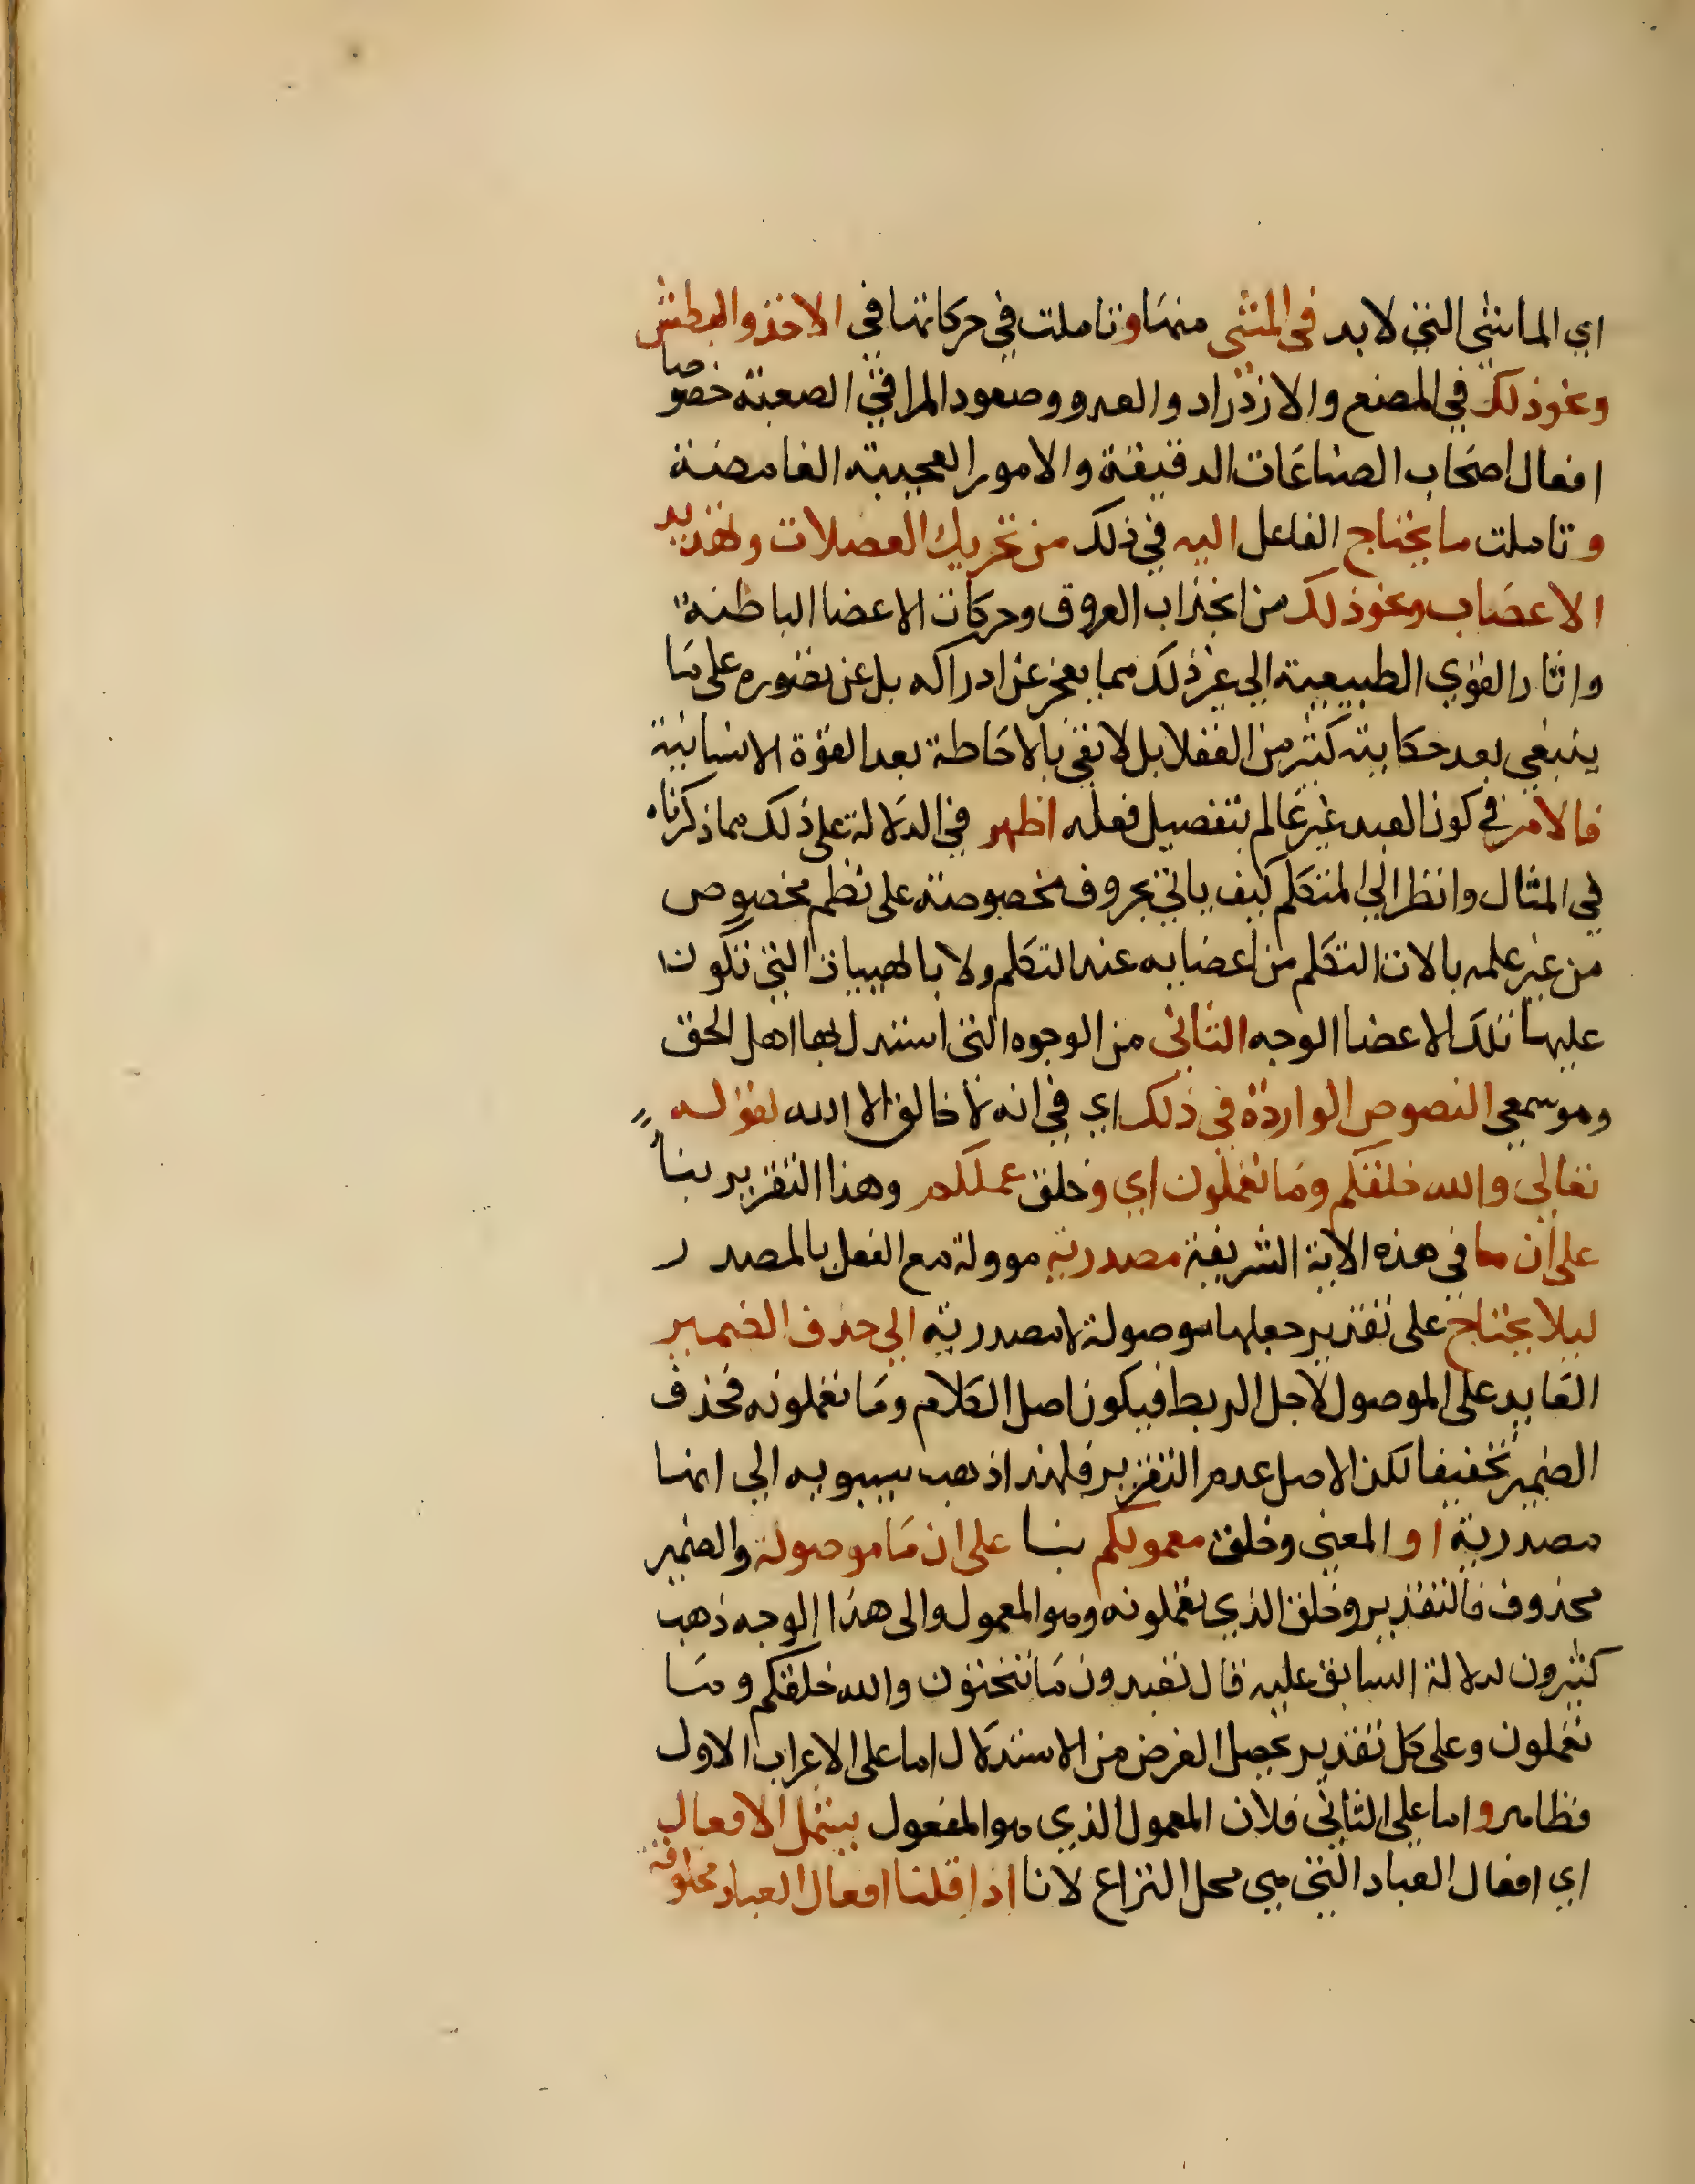 اي الماشي التي لا بد في المشي منها وتاملت في حركاتها في الاخذ والبطش
ونحو ذلك في المضغ والازدراد والعدو وصعود المراقي الصعبة خصوصا
افعال اصحاب الصناعات الدقيقة والامور العجيبة الغامضة
وتاملت ما يحتاج الفاعل اليه في ذلك من تحريك العضلات وتمديد
الاعصاب ونحو ذلك من انجذاب العروق وحركات الاعضا الباطنة
واثار القوي الطبيعية الي غير ذلك مما يعجز عن ادراكه بل عن تصوره علي ما
ينبغي بعد حكايته كثير من العقلا بل لا تفي بالاحاطة بعد القوة الانسانية
فالامر في كون العبد غير عالم بتفصيل فعله اظهر في الدلالة علي ذلك مما ذكرناه
في المثال وانظر الي المتكلم كيف ياتي بحروف مخصوصة علي نظم مخصوص
من غير علمه بالات التكلم من اعضايه عند التكلم ولا بالهييات التي تكون
عليها تلك الاعضا الوجه الثاني من الوجوه التي استدل بها اهل الحق
وهو سمعي النصوص الواردة في ذلك اي في انه لا خالق الا الله لقوله
تعالي والله خلقكم وما تعملون اي وخلق عملكم وهذا التقرير بناً
علي ان ما في هذه الاية الشريفة مصدرية موولة مع الفعل بالمصدر
ليلا يحتاج علي تقدير جعلها موصولة لا مصدرية الي حذف الضمير
العايد علي الموصول لاجل الربط فيكون اصل الكلام وما تعملونه فحذف
الضمير تخفيفا لكن الاصل عدم التقرير فلهذا ذهب سيبويه الي انها
مصدرية او المعني وخلق معمولكم بنا علي ان ما موصولة والضمير
محذوف فالتقدير وخلق الذي تعملونه وهو المعمول والي هذا الوجه ذهب
كثيرون لدلالة السابق عليه قال تعبدون ما تنحتون والله خلقكم وما
تعملون وعلي كل تقدير يحصل الغرض من الاستدلال اما علي الاعراب الاول
فظاهر واما علي الثاني فلان المعمول الذي هو المفعول يشمل الافعال
اي افعال العباد التي هي محل النزاع لانا اذا قلنا افعال العباد مخلوقة